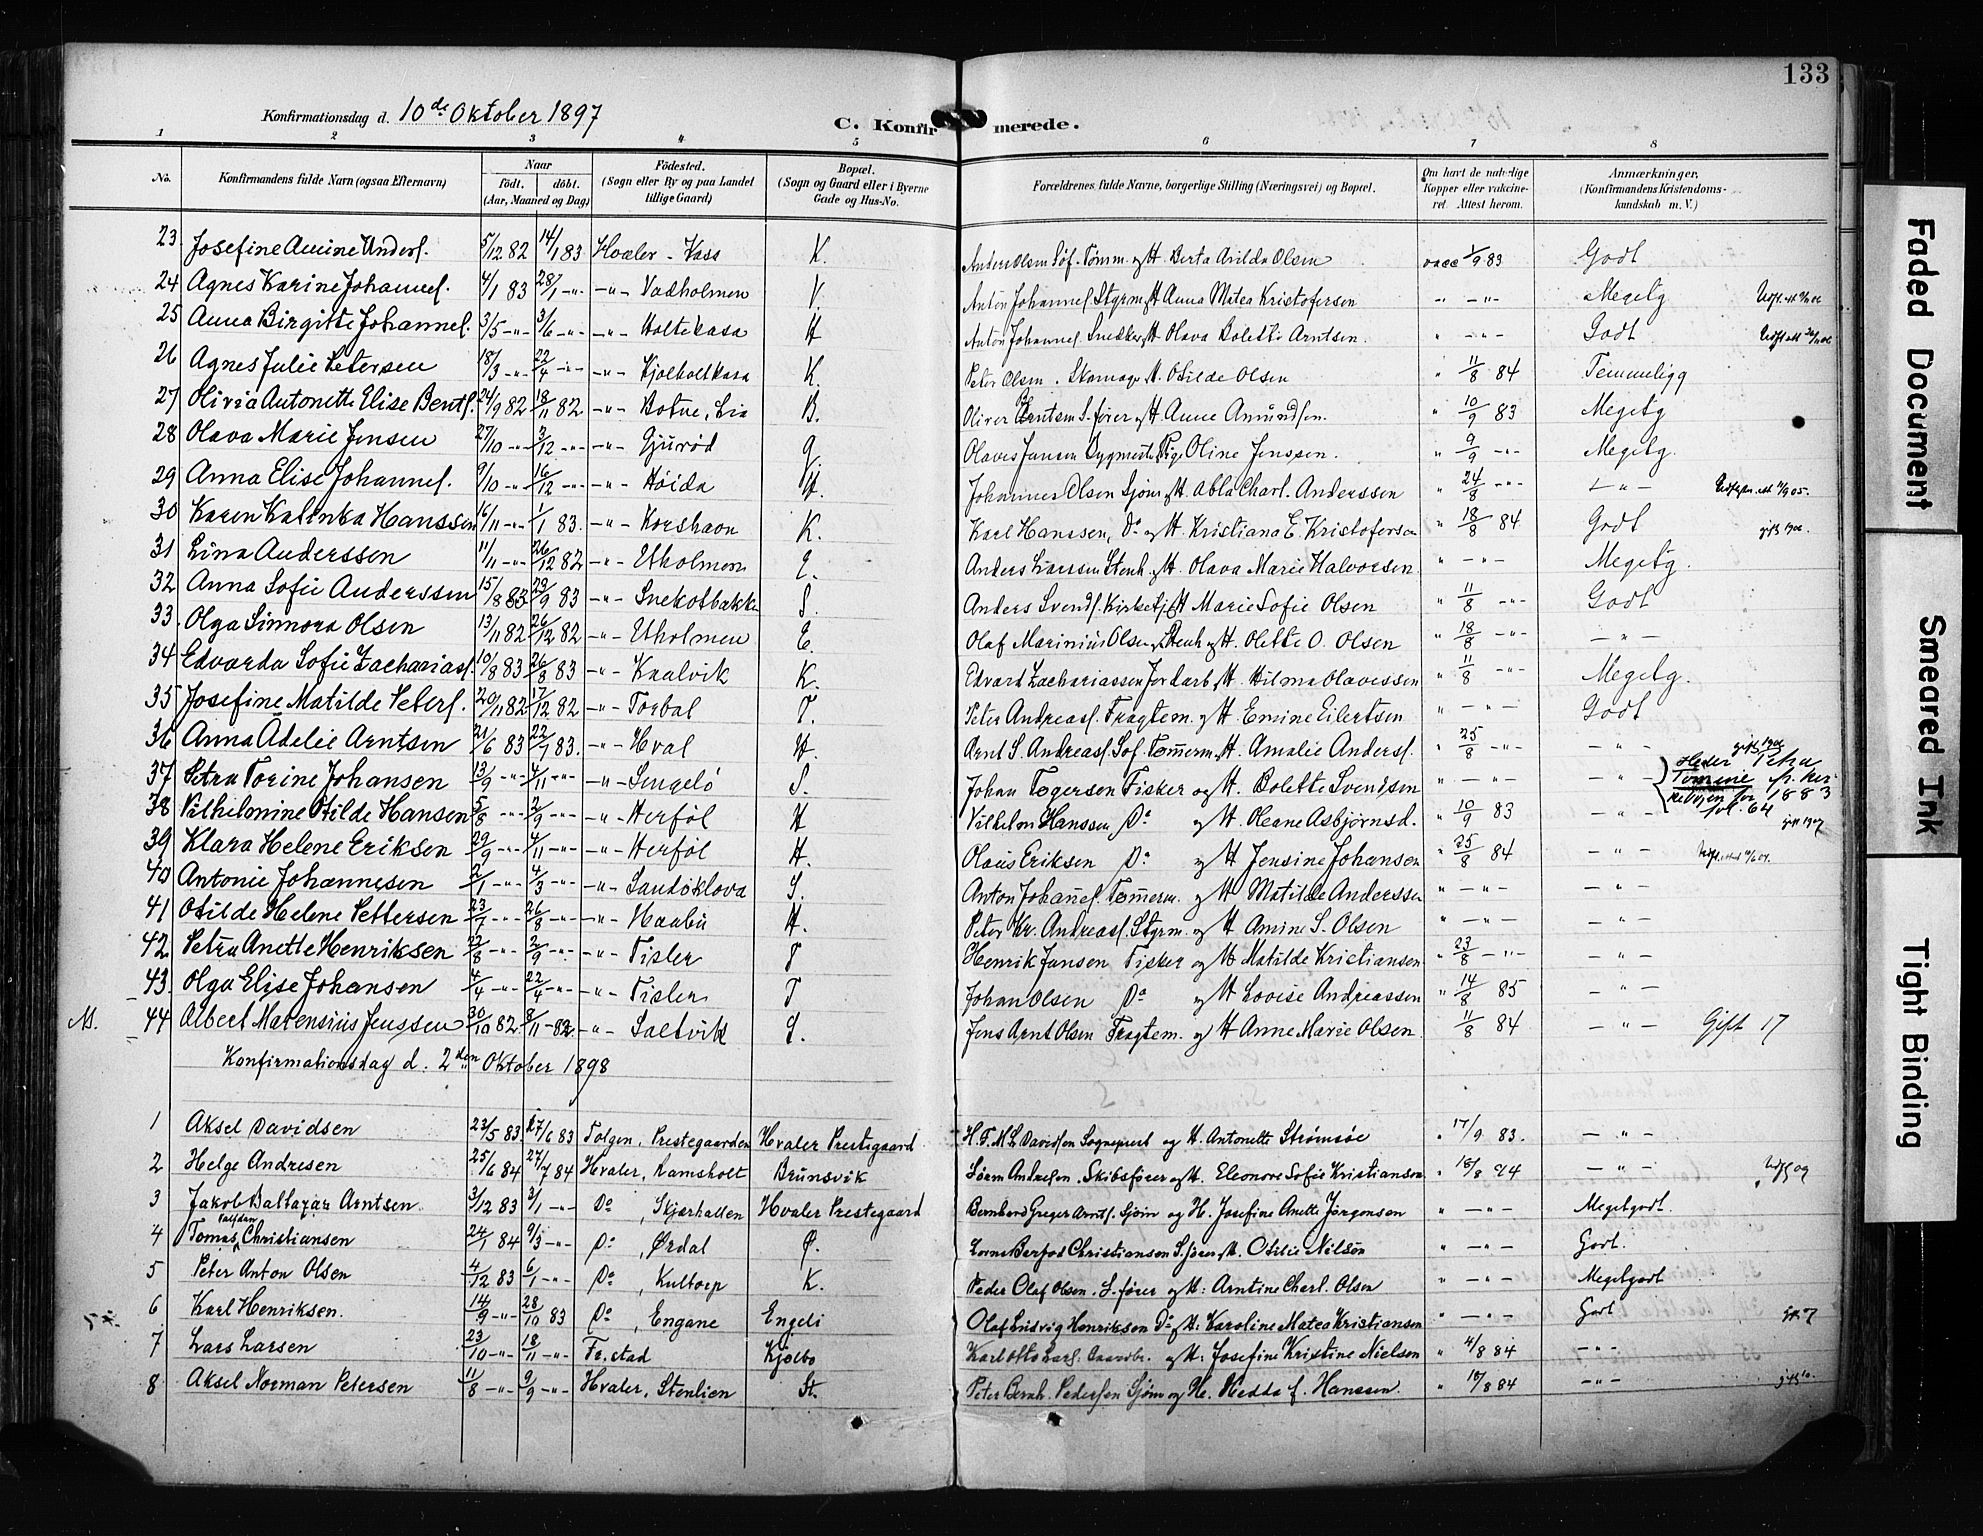 133
Konfirmationsdag d. 10de Oktober 1897
C. Konfirmerede.
1 2 3 4 5 6 7 8
No. Konfirmandens fulde Navn (ogsaa Efternavn) Naar födt. döbt. (Aar, Maaned og Dag) Födested. (Sogn eller By og paa Landet tillige Gaard) Bopæl. (Sogn og Gaard eller i Byerne Gade og Hus-No. Forældrenes fulde Navne, borgerlige Stilling (Næringsvei) og Bopæl. Om havt de naturlige Kopper eller vakcineret. Attest herom. Anmærkninger, (Konfirmandens Kristendomskundskab m. V.)
23. Josefine Amine Anders. 5/12 82 14/1 83 Hvaler - Kass K. Anders Olsen Söf. Tömm. og H. Berta Arilda Olsen vacc 1/9 83 Godt
24 Agnes Karine Johannes. 4/1 83 28/1 -"- -"- Vadholmen V Anton Johannes. Styrm. og H. Anna Matea Kristofersen " - " - Megetg
25 Anna Birgitte Johannes. 3/5 -"- 3/6 -"- -"- Holtekasa H Anton Johannes. Snedker og H. Olava Bolette Arntsen. " - " - Godt
26 Agnes Julie Petersen 18/3 -"- 22/4 -"- -"- Kjölholtkasa K. Peter Olsen. Skomager H. Otilde Olsen " 11/8 84 Temmeligg
27 Olivia Antonette Elise Bents. 24/9 82 18/11 82 -"- Botne, Lia B. Oliver Berntsen S. förer og H. Anne Amundsen. " 10/9 83 Megetg
28 Olava Marie Jensen 27/10 -"- 3/12 -"- -"- Gjuröd G. Olaves Jansen Bygmester, Pige Oline Jenssen. " 9/9 -"- Megetg.
29 Anna Elise Johannes. 9/10 -"- 16/12 -"- -"- Höida H. Johannes Olsen Sjöm. og H. Abla Charl. Anderssen " 24/8 -"- - " -
30 Karen Kalinka Hanssen 6/11 -"- 1/1 83. -"- Korshavn K. Karl Hanssen, Do og H. Kristiana E. Kristofersen " 18/8 84 Godt gift 1906.
31 Lina Anderssen 11/11 -"- 26/12 82 -"- Utholmen E. Anders Larssen Stenh. og H. Olava Marie Halvorsen. " - " - Megetg.
32 Anna Sofie Anderssen 15/8 83 23/9 83 -"- Snekotbakk. S. Anders Svends. Kirketj. H Marie Sofie Olsen " 11/8 -"- Godt
33. Olga Sinnora Olsen 13/11 82 26/12 82 -"- Utholmen E. Olaf Marinius Olsen, Stenh. og H. Olette O. Olsen " 18/8 -"- - " -
34 Edvarda Sofie Zacharias. 10/8 83 26/8 83 -"- Kaalvik K. Edvard Zachariassen Jordarb. H. Hilma Olavessen " 11/8 -"- Megetg.
35 Josefine Matilde Peters. 20/11 82 17/12 82 -"- Torbal T. Peter Andreas. Fragtem. og H. Emine Eilertsen " - " - Godt
36 Anna Adelie Arntsen 21/6 83 22/7 83. -"- Hval H. Arnt S. Andreas. Söf. Tömmerm. H. Amalie Anders. " 25/8 -"- - " - gift 1906
37 Petra Torine Johansen 13/9 -"- 4/11 -"- -"- Sengelö S. Johan Togersen Fisker og H. Bolette Svendsen " - " - - " - Heder Petra Tomine ifl. kirkebogen for 1883 fol. 64
38 Vilhelmine Otilde Hansen 5/8 -"- 2/9 -"- -"- Herföl H Vilhelm Hanssen Do og H. Oleane Asbjørnsd. " 10/9 83 - " - gift 1907
39 Klara Helene Eriksen 29/9 -"- 4/11 -"- -"- Herföl H. Olaus Eriksen Do og H Jensine Johansen " 25/8 84 - " -
40 Antonie Johannesen 2/1 -"- 4/3 -"- -"- Sandöklova S. Anton Johannes. Tömerm. og H Matilde Anderssen " - " - - " -
41 Otilde Helene Pettersen 23/7 -"- 26/8 -"- -"- Haabu H. Peter Kr. Andreas. Styrm. og H Amine S. Olsen " - " - - " -
42 Petra Anette Henriksen 22/8 -"- 2/9 -"- -"- Tisler T Henrik Jansen Fisker og H Matilde Kristiansen " 23/8 -"- - " -
43. Olga Elise Johansen 4/4 -"- 22/4 -"- -"- Tisler T Johan Olsen Do og H Lovise Andreassen " 14/8 85 - " -
M. 44 Albert Matensius Jenssen 30/10 82 8/11 82 -"- Saltvik S. Jens Arnt Olsen Fragtem. og H Anne Marie Olsen. " 11/8 84 - " - Gift 17
Konfirmationsdag d. 2den Oktober 1898
1 Aksel Davidsen 23/5 83 17/6 83 Tolgen, Prestegaarden Hvaler Prestegaard H. F. M. L. Davidsen Sogneprest og H. Antonette Strömsöe " 17/9 83. - " -
2 Helge Andresen 25/6 84 27/7 84 Hvaler, Ramsholt Brunsvik Sören Andresen. Skibsförer og H. Eleonore Sofie Kristiansen " 18/8 94 - " - Udf. 09
3 Jakob Baltazar Arntsen. 3/12 83 3/1 -"- Do, Skjærhallen Hvaler Prestegaard Bernhard Greger Arnts. Sjöm og H. Josefine Anette Jörgensen " - " - Megetgodt.
4 Tomas Christiansen 24/1 84 9/3 -"- Do, Ørdal Ø. Lorns Berfod Christiansen S. förer og H. Otilie Nilsön " - " - Godt.
5 Peter Anton Olsen 4/12 83 6/1 -"- Do, Kultorp K. Peder Olaf Olsen. S. förer og H: Arntine Charl. Olsen " - " - Megetgodt
6 Karl Henriksen. 14/9 -"- 28/10 83 Do, Engane Engeli Olaf Ludvig Henriksen Do og H: Karoline Matea Kristiansen " - " - Godt
7 Lars Larsen 23/10 -"- 18/11 -"- Fr. stad Kjölbo Karl Otto Lars. og H: Josefine Kristine Nielsen " 4/8 84 - " -
8 Aksel Norman Petersen 11/8 -"- 9/9 -"- Hvaler, Stenlien St. Peter Bernh. Pedersen Sjöm og H. Hedda f. Hanssen. " 18/8 84 - " -
Faded Document
Smeared Ink
Tight Binding